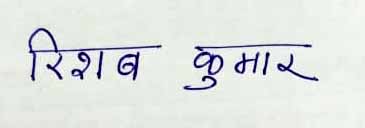 रिशब कुमार